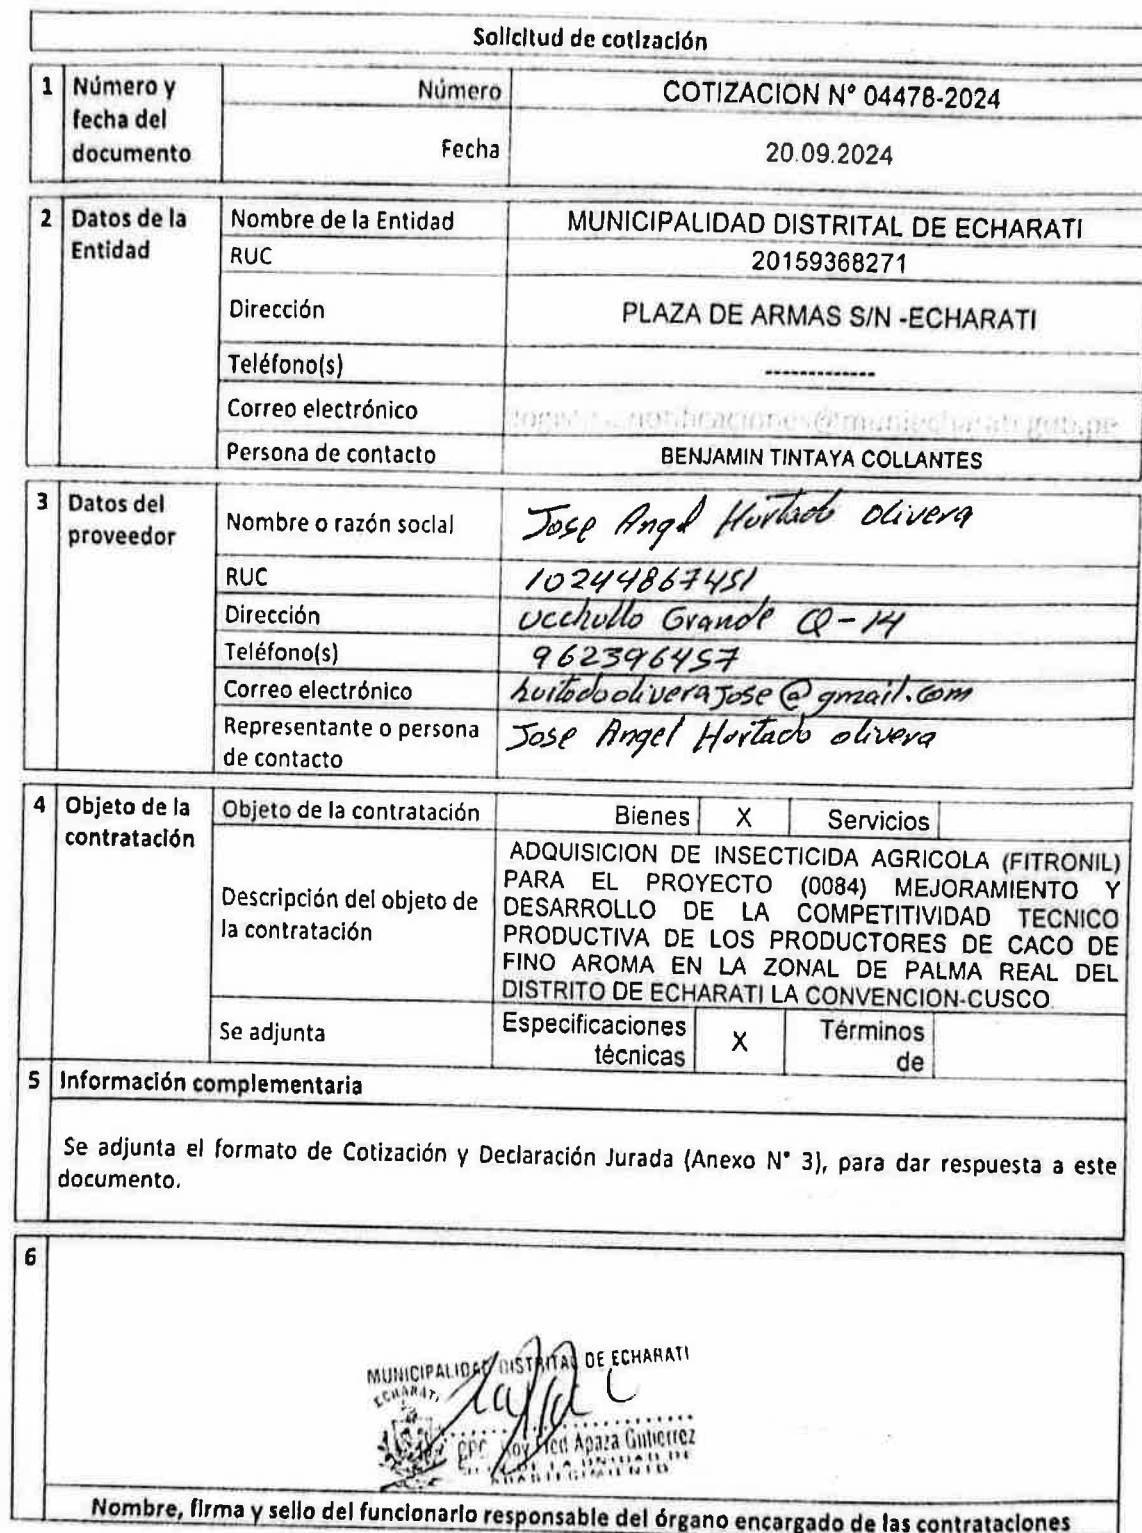 Solicitud de cotización
1 Número y fecha del documento
Número COTIZACION N° 04478-2024
Fecha 20.09.2024
2 Datos de la Entidad
Nombre de la Entidad MUNICIPALIDAD DISTRITAL DE ECHARATI
RUC 20159368271
Dirección PLAZA DE ARMAS S/N -ECHARATI
Teléfono(s) -------------
Correo electrónico
Persona de contacto BENJAMIN TINTAYA COLLANTES
3 Datos del proveedor
Nombre o razón social Jose Angel Hurtado Olivera
RUC 10244867451
Dirección Ucchullo Grande Q-14
Teléfono(s) 962396457
Correo electrónico hurtadooliverajose@gmail.com
Representante o persona de contacto Jose Angel Hurtado olivera
4 Objeto de la contratación
Objeto de la contratación Bienes X Servicios
Descripción del objeto de la contratación
ADQUISICION DE INSECTICIDA AGRICOLA (FITRONIL)
PARA EL PROYECTO (0084) MEJORAMIENTO Y
DESARROLLO DE LA COMPETITIVIDAD TECNICO
PRODUCTIVA DE LOS PRODUCTORES DE CACO DE
FINO AROMA EN LA ZONAL DE PALMA REAL DEL
DISTRITO DE ECHARATI LA CONVENCION-CUSCO.
Se adjunta Especificaciones técnicas X Términos de
5 Información complementaria
Se adjunta el formato de Cotización y Declaración Jurada (Anexo N° 3), para dar respuesta a este
documento.
6
MUNICIPALIDAD DISTRITAL DE ECHARATI
ECHARATI
CPC. Roy Apaza Gutierrez
DE LA UNIDAD DE
ABASTECIMIENTO
Nombre, firma y sello del funcionario responsable del órgano encargado de las contrataciones